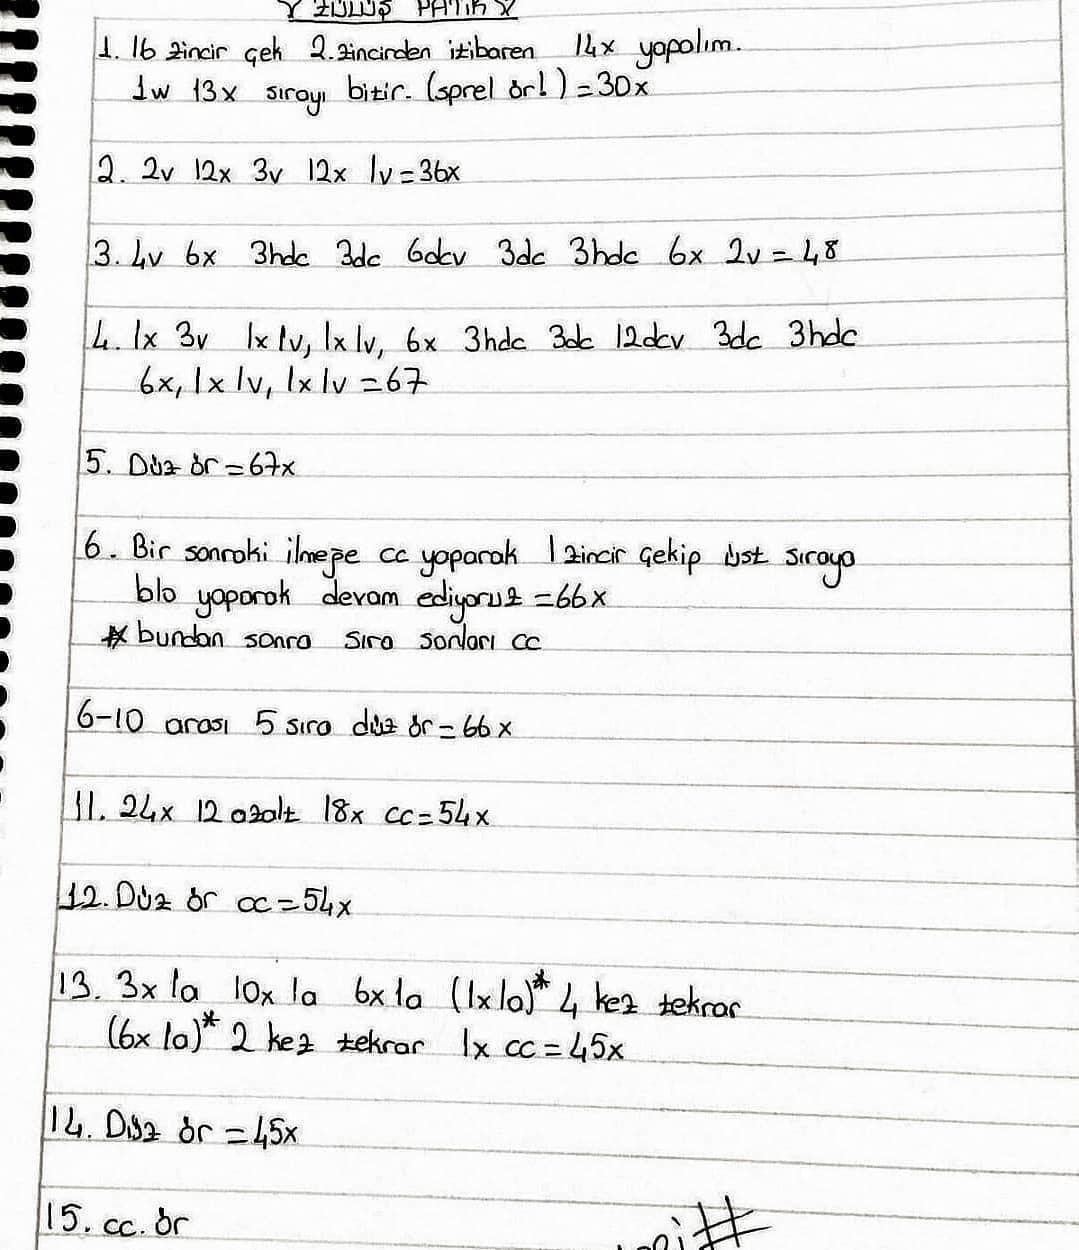 ZÜLÜŞ PATİK
1. 16 zincir çek 2.zincirden itibaren 14x yapalım.
1w 13x sırayı bitir. (sprel ör!) = 30x
2. 2v 12x 3v 12x 1v = 36x
3. 4v 6x 3hdc 3dc 6dcv 3dc 3hdc 6x 2v = 48
4. 1x 3v 1x 1v, 1x 1v, 6x 3hdc 3dc 12dcv 3dc 3hdc
6x, 1x 1v, 1x 1v = 67
5. Düz ör = 67x
6. Bir sonraki ilmeğe cc yaparak 1 zincir çekip üst sıraya
blo yaparak devam ediyoruz = 66x
* bundan sonra sıra sonları cc
6-10 arası 5 sıra düz ör = 66x
11. 24x 12 azalt 18x cc = 54x
12. Düz ör cc = 54x
13. 3x 1a 10x 1a 6x 1a (1x 1a)* 4 kez tekrar
(6x 1a)* 2 kez tekrar 1x cc = 45x
14. Düz ör = 45x
15. cc. ör